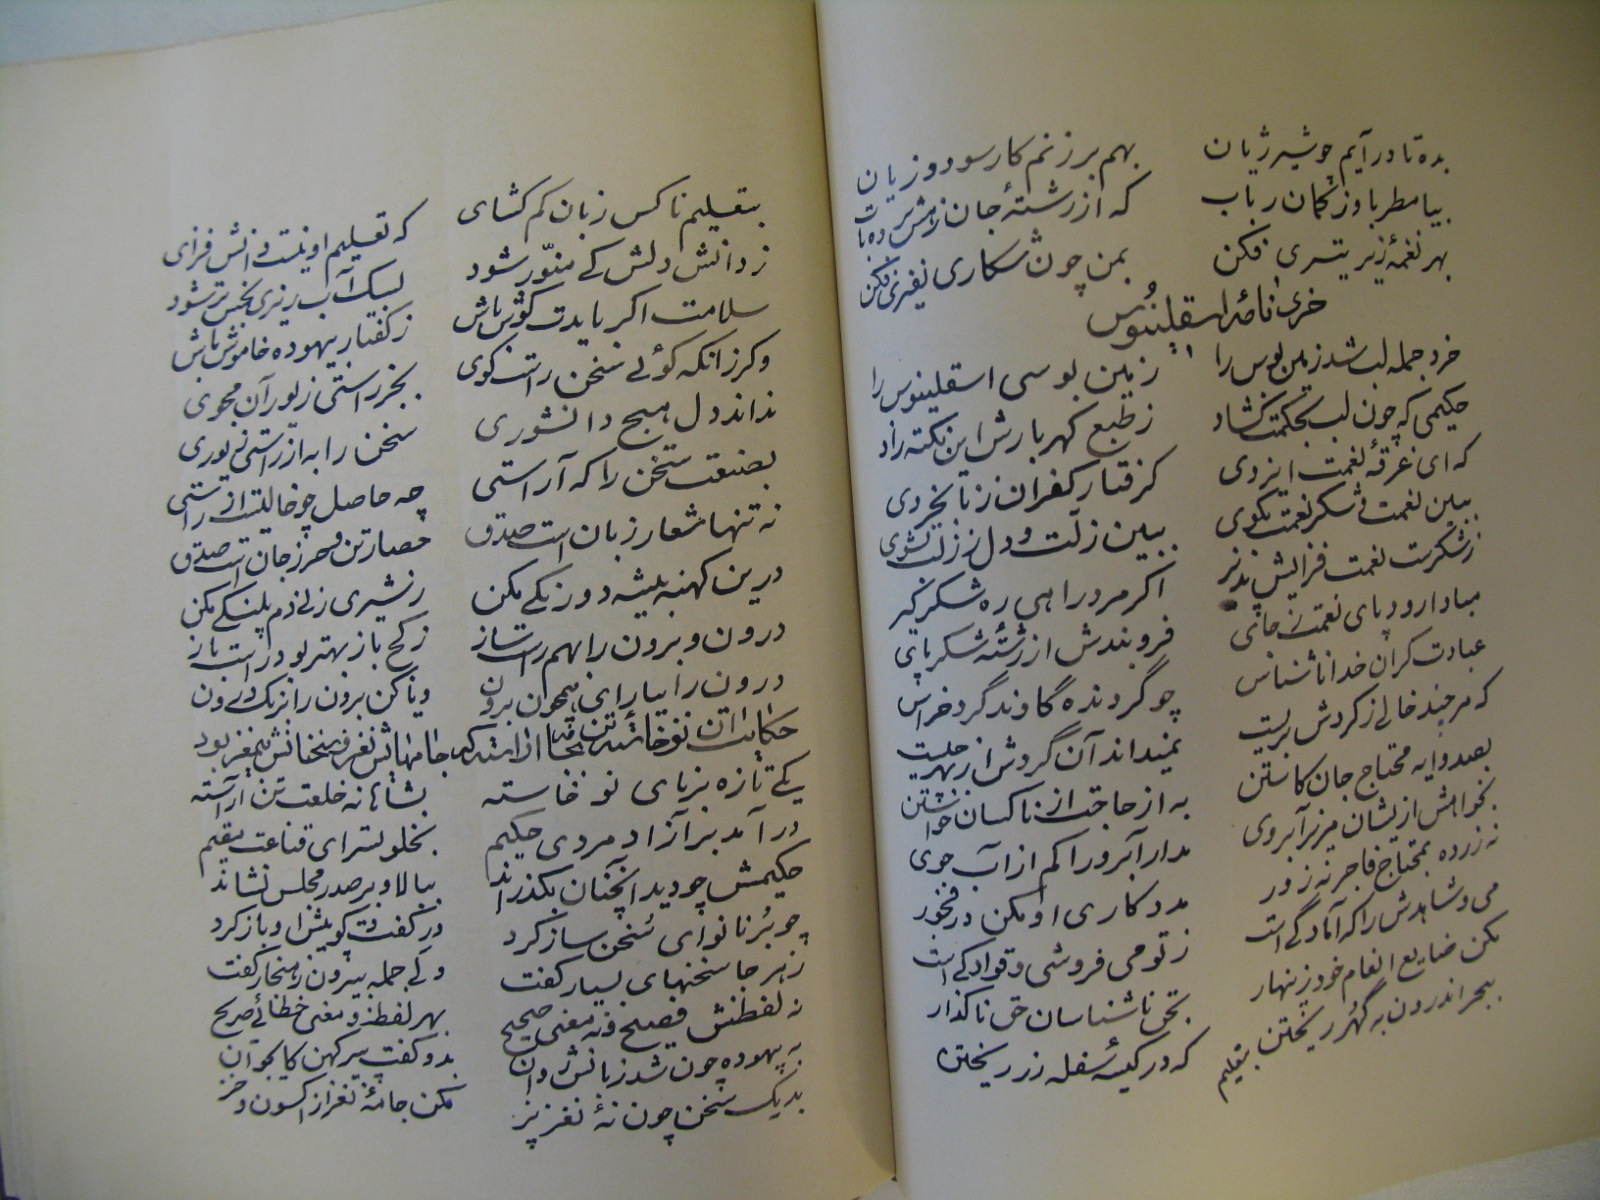 بده تا درآیم چو شیر ژیان بهم برزنم کار سود و زیان
بیا مطربا وز کمان رباب که از رشتهٔ جان زهش برده تاب
بهر نغمهٔ زیر تیری فکن بمن چون شکاری نفیری فکن
خردنامهٔ اسقلینوس
خرد جمله لب شد زمین بوس را زمین بوسی اسقلینوس را
حکیمی که چون لب بحکمت گشاد ز طبع گهربارش این نکته زاد
که ای غرقهٔ نعمت ایزدی گرفتار کفران ز نابخردی
ببین نعمت و شکر نعمت بگوی ببین زلت و دل ز زلت بشوی
ز شکرست نعمت فزایش پذیر اگر مرد راهی ره شکر گیر
مبادا رود پای نعمت ز جای فروبندش از رشتهٔ شکر پای
عبادت گران خدا ناشناس چو گردنده گاوند گرد خراس
که هر چند خالی ز گردش نزیست نمیداند آن گردش از بهر چیست
بصد وایه محتاج جان کاستن به از حاجت از ناکسان خواستن
بخواهش ازیشان مریز آبروی مدار آبرو را کم از آب جوی
نه زر ده بمحتاج فاجر نه زور مددکاری او مکن در فجور
می و شاهدش را که آمادگی است ز تو می فروشی و قوادگی است
مکن ضایع انعام خود زینهار بحق ناشناسان حق ناگذار
ببحر اندرون به گهر ریختن که در کیسهٔ سفله زر ریختن
بتعلیم
بتعلیم ناکس زبان کم گشای که تعلیم او نیست دانش فزای
ز دانش دلش کی منور شود لبیک آب ریزی نجس تر شود
سلامت اگر بایدت گوش باش ز گفتار بیهوده خاموش باش
وگر زانکه گوئی سخن راست گوی بجز راستی زیور آن مجوی
نداند دل هیچ دانشوری سخن را به از راستی زیوری
بصنعت سخن را که آراستی چه حاصل چو خالیست از راستی
نه تنها شعار زبان است صدق حصار تن و حرز جان است صدق
درین کهنه بیشه دو رنگی مکن ز شیری زنی دم پلنگی مکن
درون و برون را بهم راست ساز ز کج باز بهتر بود راست باز
درون را بیارای همچون برون و یا کن برون را برنگ درون
حکایت آن نوخاسته تن بجامها آراسته که جامهایش نغز و سخنانش بیمغز بود
یکی تازه برنای نوخاسته بشاهانه خلعت تن آراسته
درآمد بر آزاد مردی حکیم بخلوتسرای قناعت مقیم
حکیمش چو دید آنچنان بگذراند ببالا و بر صدر مجلس نشاند
چو برنا نوای سخن ساز کرد در گفت و گو پیش او باز کرد
ز هر جا سخنهای بسیار گفت ولی جمله بیرون ز هنجار گفت
نه لفظش فصیح و نه معنی صحیح بهر لفظ و معنی خطائی صریح
به بیهوده چون شد زبانش روان بدو گفت پیر کهن کای جوان
بدیک سخن چون نهٔ نغز پز مکن جامهٔ نغز از اکسون و خز